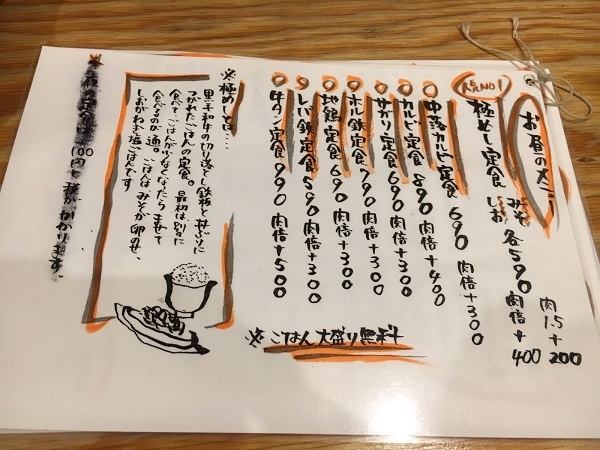 お昼のメニュー
人気NO1
極めし定食 みそ しお 各590 肉1.5+200 肉倍+400
中落カルビ定食 690 肉倍+300
カルビ定食 890 肉倍+400
サガリ定食 690 肉倍+300
ホル鉄定食 790 肉倍+300
地鶏定食 690 肉倍+300
レバ鉄定食 590 肉倍+300
牛タン定食 990 肉倍+500
※ごはん大盛り無料
※極めしとは…
黒毛和牛の切り落とし鉄板と丼ぶりに
つがれたごはんの定食。最初は別々に
食べてごはんが少なくなったらまぜて
食べるのが通。ごはんは、みそが卵のせ、
しおがねぎ塩ごはんです。
※ 100円と税がかかります。